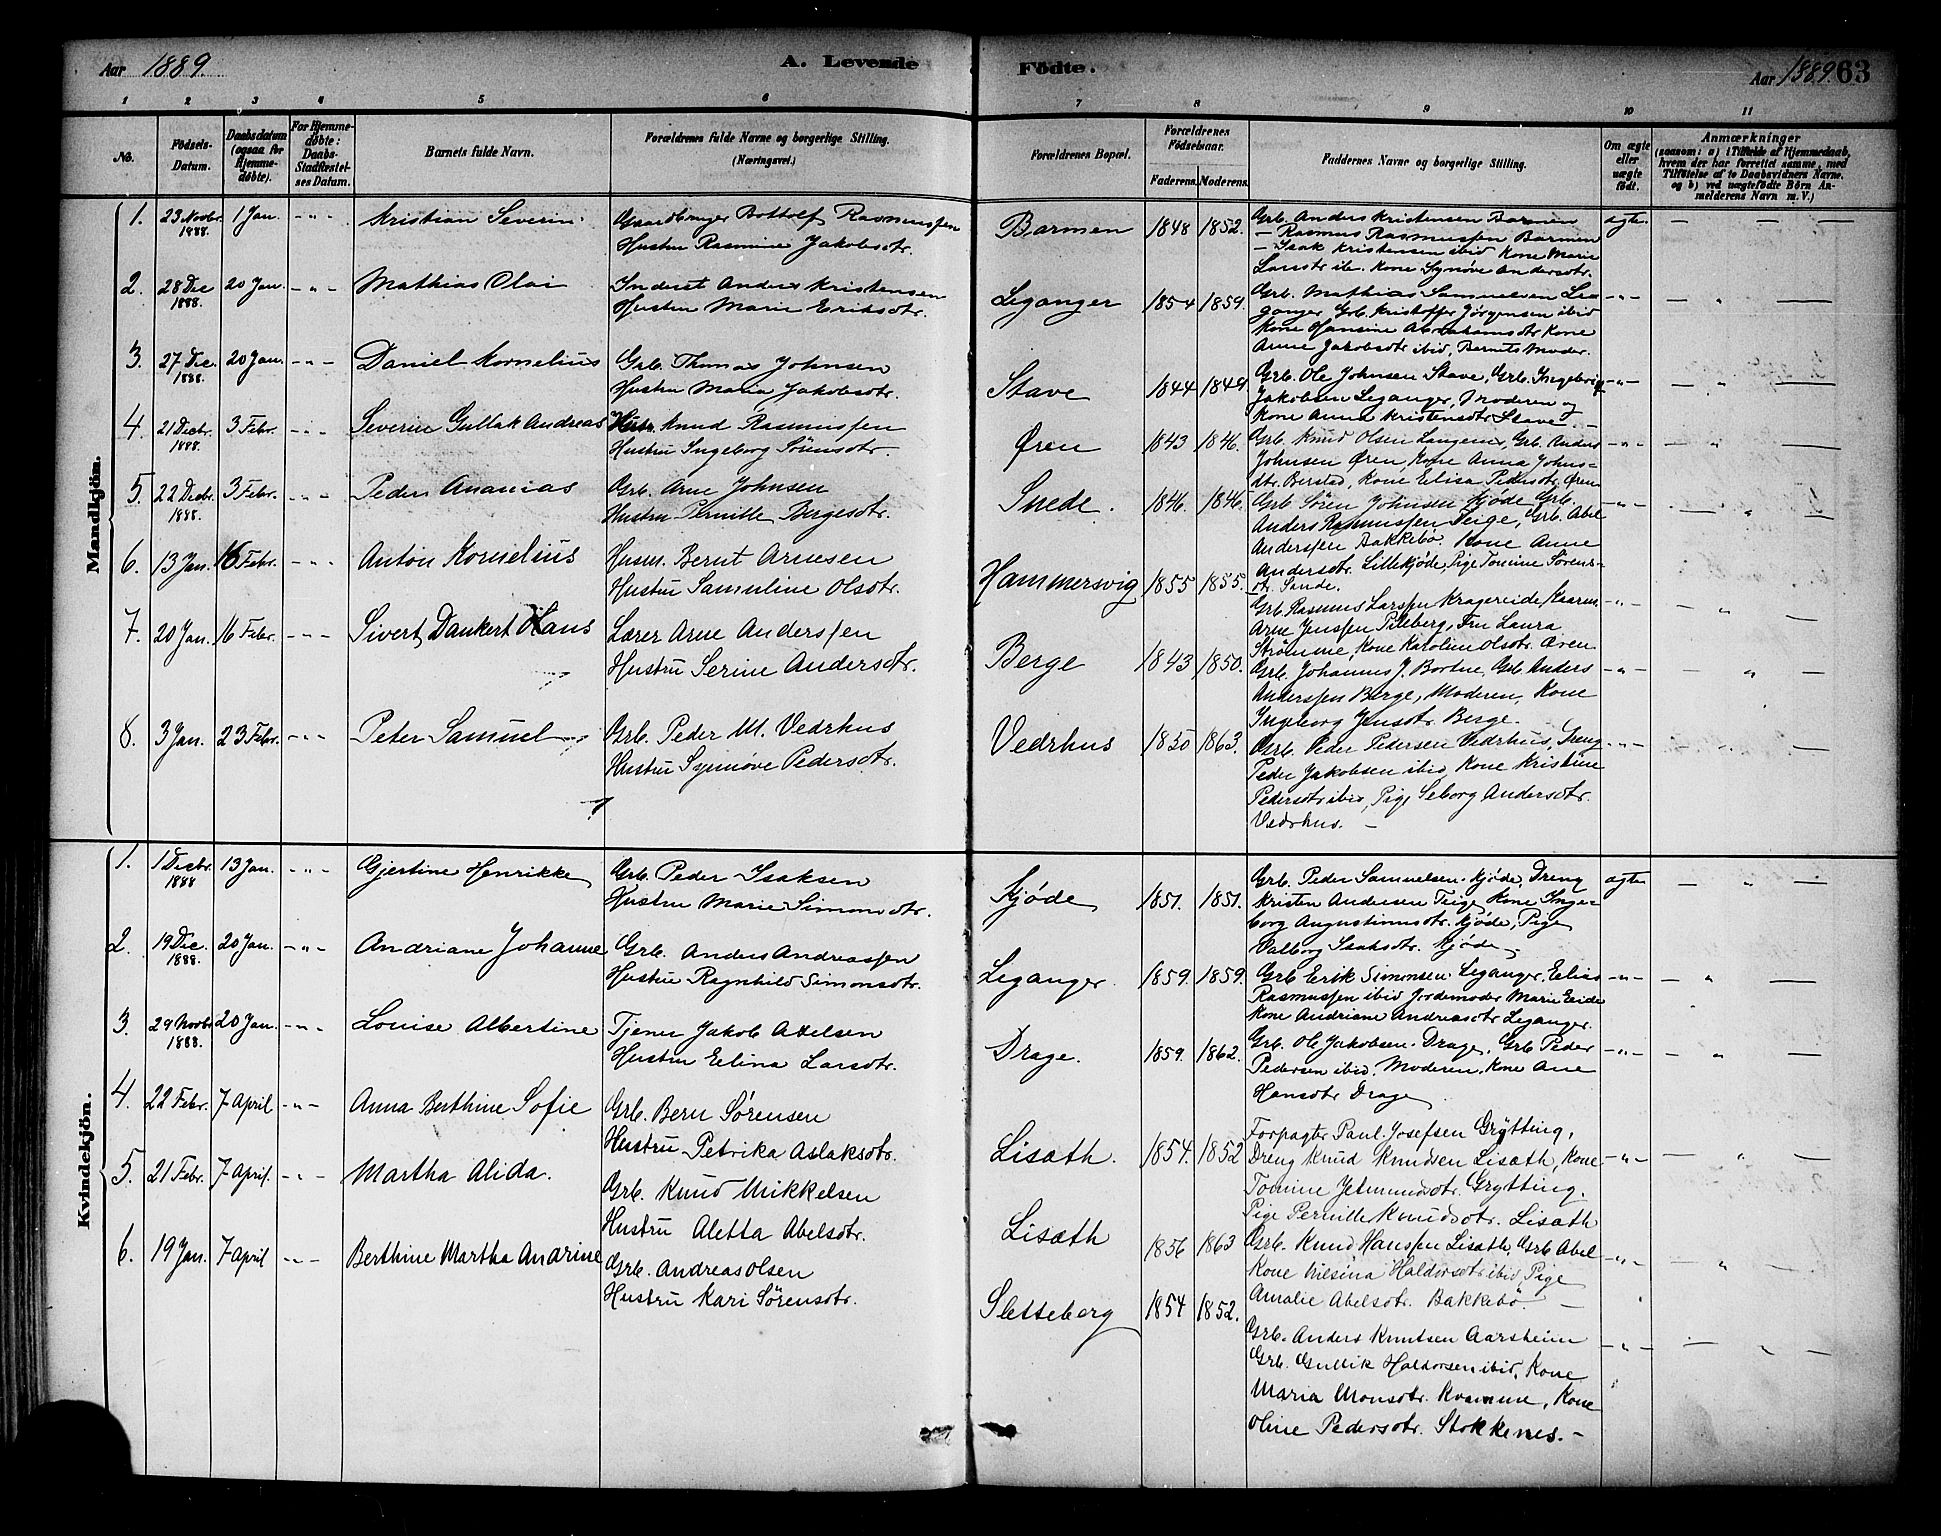 Aar 1889.
A. Levende
Födte.
Aar 1889. 63
1 2 3 4 5 6 7 8 9 10 11
No.
Födsels-
Datum.
Daabsdatum
(ogsaa for
Hjemme-
døbte).
For Hjemme-
døbte:
Daabs-
Stadfæstel-
ses Datum.
Barnets fulde Navn.
Forældrenes fulde Navne og borgerlige Stilling.
(Næringsvei.)
Forældrenes Bopæl.
Forældrenes
Födselsaar.
Faderens. Moderens.
Faddernes Navne og borgerlige Stilling.
Om ægte
eller
uægte
født.
Anmærkninger
(saasom: a) i Tilfælde af Hjemmedaab,
hvem der har forrettet samme, med
Tilföielse af to Daabsvidners Navne,
og b) ved uægtefödte Börn An-
melderens Navn m. V.)
Mandkjön.
1. 23 Novbr. 1888. 1 Jan. - " - Kristian Severin.
Gaardbruger Bottolf Rasmussen
Hustru Rasmine Jakobsdtr.
Barmen 1848 1852.
Grb. Anders Kristensen Barmen
— Rasmus Rasmussen Barmen
— Isak Kristensen ibid Kone Marie
Larsdtr ib. Kone Synöve Andersdtr.
ægte. — — —
2. 28 Dec 1888. 20 Jan. - " - Mathias Olai
Inderst Anders Kristensen
Hustru Marie Eriksdtr.
Leganger 1854 1859.
Grb. Mathias Samuelsen Le-
ganger Grb. Kristoffer Jörgensen ibid
Kone Hansine Abrahamsdtr Kone
Anne Jakobsdtr ibid, Barnets Moder.
- " - — " —
3. 27 Dec. 1888. 20 Jan. - " - Daniel Kornelius
Grb. Thomas Johnsen
Hustru Maria Jakobsdtr.
Stave 1844 1849
Grb. Ole Johnsen Stave, Grb. Ingebrigt
Jakobsen Leganger, Moderen og
Kone Anne Kristensdtr Stave. —
- " - — " —
4. 21 Decbr. 1888. 3 Febr. - " - Severin Gullak Andreas
Knud Rasmussen
Hustru Ingeborg Sörensdtr.
Øren 1843 1846.
Grb. Knud Olsen Langenes, Grb. Anders
Johnsen Øren, Kone Anna Johns-
dtr. Berstad, Kone Elisa Pedersdtr. Øren
- " - — " —
5. 22 Decbr. 1888. 3 Febr. - " - Peder Ananias
Grb. Arne Johnsen
Hustru Pernille Bergesdtr.
Snede. 1846. 1846.
Grb Sören Johnsen Kjöde, Grb.
Anders Rasmussen Teige, Grb. Abel
Anderssen Bakkebö, Kone Anne
Andersdtr. Lillekjöde, Pige Tomine Sörens-
dtr. Sande.
- " - — " —
6. 13 Jan. 16 Febr. - " - Anton Kornelius
Husm. Bernt Arnesen
Hustru Samuline Olsdtr.
Hammersvig 1855 1855.
Grb. Rasmus Larssen Kragereide, Kaaren
Arne Jenssen Pilleberg, Fru Laura
Strömme, Kone Karoline Olsdtr. Øren
- " - — " —
7. 20 Jan. 16 Febr. - " - Sivert, Dankert Hans
Lærer Arne Anderssen
Hustru Serine Andersdtr.
Berge 1843 1850.
Grb. Johannes J. Bortne, Grb. Anders
Anderssen Berge, Moderen, Kone
Ingeborg Jensdtr. Berge.
- " - — " —
8. 3 Jan. 23 Febr. - " - Peter Samuel
Grb. Peder M. Vedrhus
Hustru Synnöve Pedersdtr.
Vedrhus 1850 1863.
Grb. Peder Pedersen Vedrhus, Dreng
Peder Jakobsen ibid, Kone Kristine
Pedersdtr ibid, Pige Seborg Andersdtr.
Vedrhus. —
- " - — " —
Kvindekjön.
1. 1 Decbr. 1888 13 Jan. - " - Gjertine Henrikke
Grb. Peder Isaksen
Hustru Marie Simonsdtr.
Kjöde 1851. 1851.
Grb. Peder Samuelsen Kjöde, Dreng
Kristen Andersen Teige Kone Inge-
borg Augustinusdtr. Kjöde, Pige
Valborg Isaksdtr. Kjöde
ægte — " —
2. 19 Dec. 1888. 20 Jan. - " - Andriane Johanne
Grb. Anders Andreassen
Hustru Ragnhild Simonsdtr.
Leganger. 1859. 1859.
Grb Erik Simonsen Leganger, Elias
Rasmussen ibid Jordemoder Marie Eide
Kone Andriane Andreasdtr Leganger.
- " - — " —
3. 29 Novbr 1888. 20 Jan. - " - Louise Albertine
Tjener Jakob Axelsen
Hustru Elina Larsdtr.
Drage. 1859. 1862.
Grb. Ole Jakobsen Drage, Grb Peder
Pedersen ibid, Moderen, Kone Ane
Hansdtr Drage
- " - — " —
4. 22 Febr. 7 April - " - Anna Berthine Sofie
Grb. Bern Sørensen
Hustru Petrika Aslaksdtr.
Lisæth. 1854. 1852
Forpagter Paul Josefsen Grytting,
Dreng Knud Knudsen Lisæth, Kone
Tomine Jetmundsdtr. Grytting.
Pige Pernille Knudsdtr. Lisæth
- " - — " —
5. 21 Febr. 7 April. - " - Martha Alida.
Grb. Knud Mikkelsen
Hustru Aletta Abelsdtr.
Lisæth 1856 1863
Grb. Knud Hanssen Lisæth, Grb Abel
Kone Nilsina Haldorsdtr ibid, Pige
Amalie Abelsdtr. Bakkebö. —
- " - — " —
6. 19 Jan. 7 April - " - Berthine Martha Andrine
Grb. Andreas Olsen
Hustru Kari Sörensdtr.
Sletteberg 1854 1852.
Grb. Anders Knutsen Aarsheim
Grb. Gullik Haldorsen ibid, Kone
Maria Monsdtr. Kvamme, Kone
Oline Pedersdtr. Stokkenes. —
- " - — " —